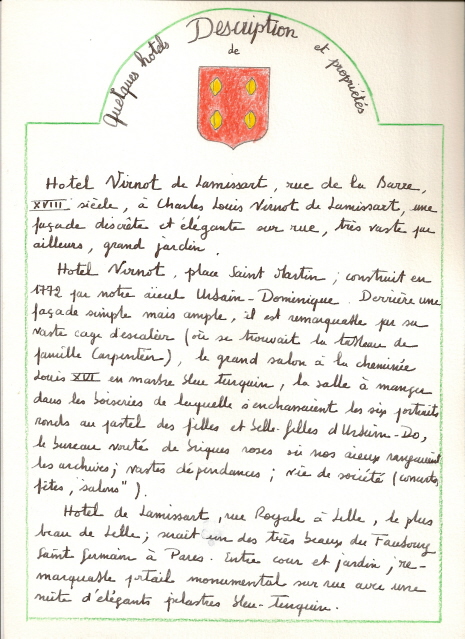 Description
de
Quelques hotels
et propriétés
Hotel Virnot de Lamissart, rue de la Barre,
XVIII siècle, à Charles Louis Virnot de Lamissart, une
façade discrète et élégante sur rue, très vaste par
ailleurs, grand jardin.
Hotel Virnot, place Saint Martin ; construit en
1772 par notre aïeul Urbain-Dominique. Derrière une
façade simple mais ample, il est remarquable par sa
vaste cage d'escalier (où se trouvait la tableau de
famille Carpentier), le grand salon à la cheminée
Louis XVI en marbre bleu turquin, la salle à manger
dans les boiseries de laquelle s'enchassaient les six portraits
ronds au pastel des filles et belle-filles d'Urbain-Do,
le bureau vouté de briques roses où nos aïeux rangeaient
les archives ; vastes dépendances ; vie de société (concerts,
fêtes, "salons").
Hotel de Lamissart, rue Royale à Lille, le plus
beau de Lille ; serait un des très beaux du Faubourg
Saint Germain à Paris. Entre cour et jardin ; re-
marquable portail monumental sur rue avec une
suite d'élégants pilastres bleu-turquin.